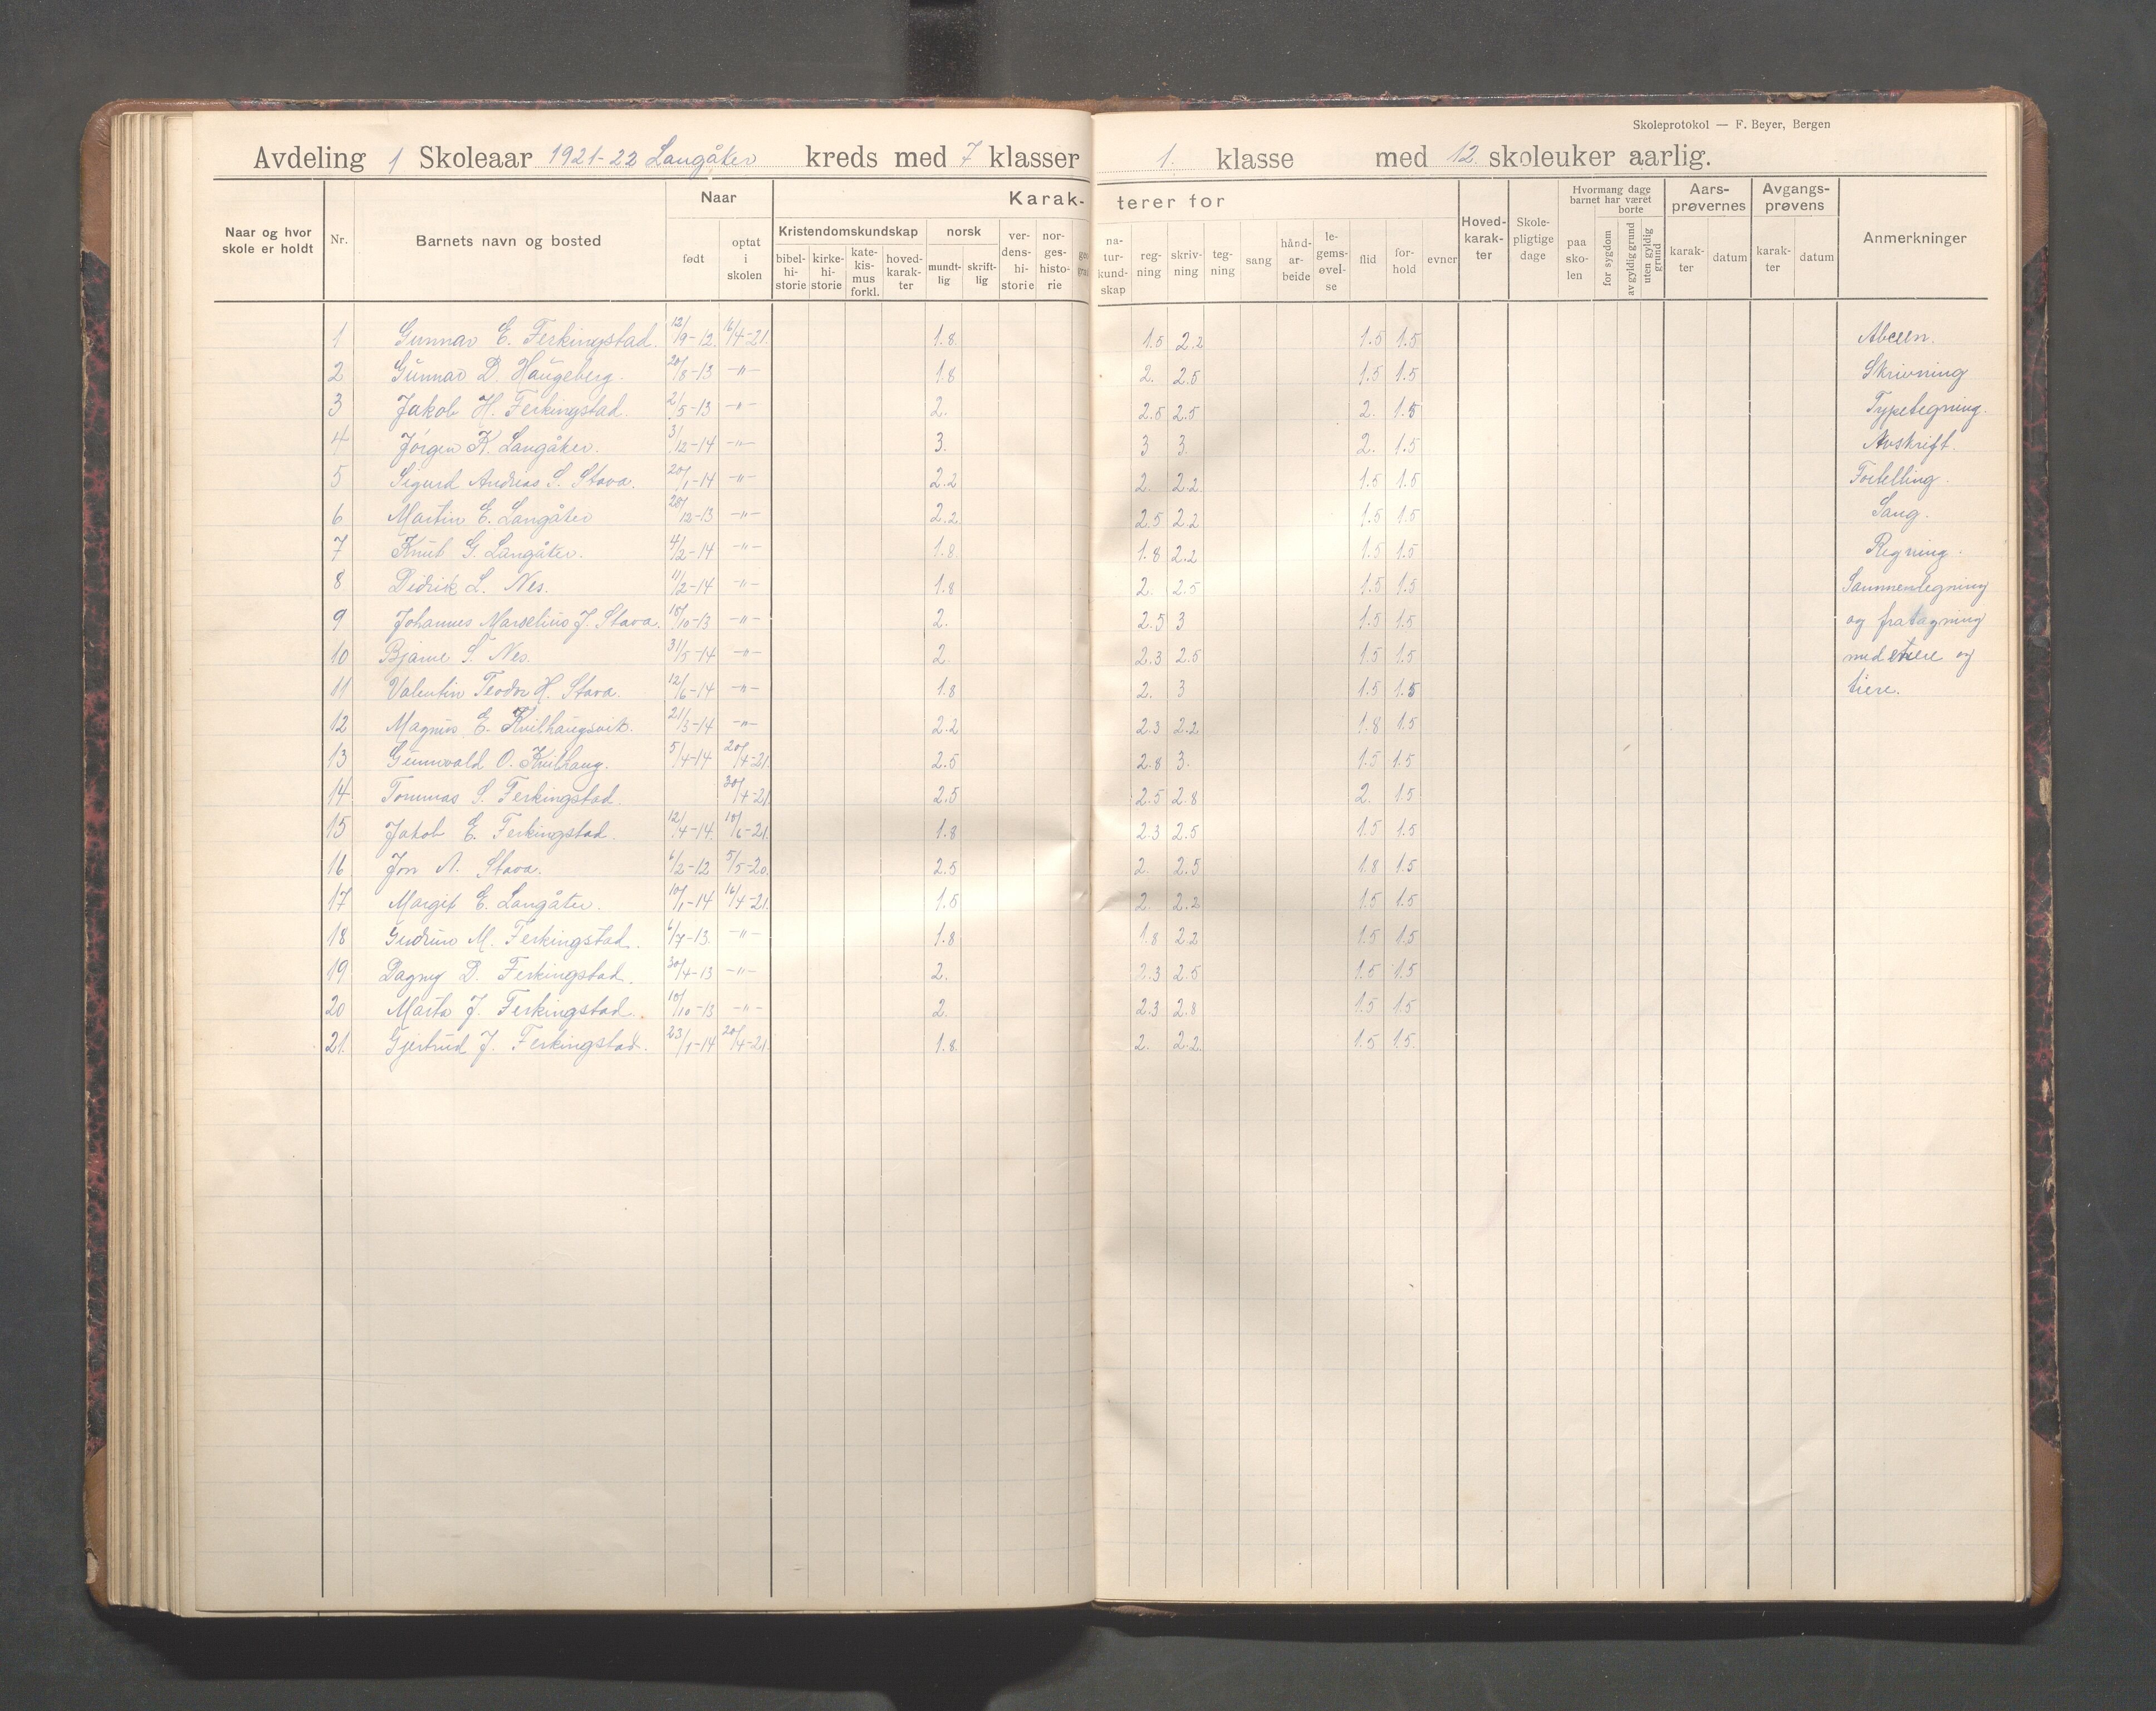 Skoleprotokol — F. Beyer, Bergen
Avdeling 1 Skoleaar 1921-22 Langåker kreds med 7 klasser 1. klasse med 12. skoleuker aarlig.
Naar og hvor skole er holdt | Nr. | Barnets navn og bosted | Naar | født | optat i skolen | Karakterer for | Kristendomskundskap | bibelhistorie | kirkehistorie | katekismus forkl. | hovedkarakter | norsk | mundtlig | skriftlig | verdenshistorie | norgeshistorie | naturkundskap | regning | skrivning | tegning | sang | håndarbeide | legemsøvelse | flid | forhold | evner | Hovedkarakter | Skolepligtige dage | Hvormang dage barnet har været | paa skolen | borte | for sygdom | av gyldig grund | uten gyldig grund | Aarsprøvernes | karakter | datum | Avgangsprøvens | karakter | datum | Anmerkninger
1 Gunnar E. Ferkingstad. 12/9-12. 16/4-21. 1.8 1.5 2.2 1.5 1.5 Abceen.
2 Gunnar D. Haugeberg. 20/8-13 -"- 1.8 2. 2.5 1.5 1.5 Skrivning
3 Jakob H. Ferkingstad. 2/5-13 -"- 2. 2.5 2.5 2. 1.5 Typetegning.
4 Jörgen K. Langåker. 3/12-14 -"- 3. 3 3. 2. 1.5 Avskrift.
5 Sigurd Andreas S. Stava. 20/1-14 -"- 2.2 2. 2.2 1.5 1.5 Fortelling.
6 Martin E. Langåker 28/12-13 -"- 2.2 2.5 2.2 1.5 1.5 Sang.
7 Knut G. Langåker. 4/2-14 -"- 1.8 1.8 2.2 1.5 1.5 Regning.
8 Didrik L. Nes. 11/2-14 -"- 1.8 2. 2.5 1.5 1.5 Sammenlegning
9 Johannes Marselius J. Stava. 18/10-13 -"- 2. 2.5 3 1.5 1.5 og fratagning
10 Bjarne S. Nes. 31/5-14 -"- 2. 2.3 2.5 1.5 1.5 med enere og
11 Valentin Teodor H. Stava. 12/6-14 -"- 1.8 2. 3 1.5 1.5 tiere.
12 Magnus E. Kvilhaugsvik. 21/3-14 -"- 2.2 2.3 2.2 1.8 1.5
13 Gunnvald O. Kvilhaug. 5/4-14 20/4-21. 2.5 2.8 3. 1.5 1.5
14 Tommas S. Ferkingstad. 30/4-21. 2.5 2.5 2.8 2. 1.5
15 Jakob E. Ferkingstad. 12/4-14. 10/6-21. 1.8 2.3 2.5 1.5 1.5
16 Jon A. Stava. 6/2-12 5/5-20. 2.5 2. 2.5 1.8 1.5
17 Margit E. Langåker. 10/1-14 16/4-21. 1.5 2. 2.2 1.5 1.5
18 Gudrun M. Ferkingstad. 6/7-13. -"- 1.8 1.8 2.2 1.5 1.5
19 Dagny D. Ferkingstad. 30/4-13 -"- 2. 2.3 2.5 1.5 1.5
20 Marta J. Ferkingstad. 10/10-13 -"- 2. 2.3 2.8 1.5 1.5
21. Gjertrud J. Ferkingstad. 23/1-14 20/4-21. 1.8. 2. 2.2. 1.5 1.5.